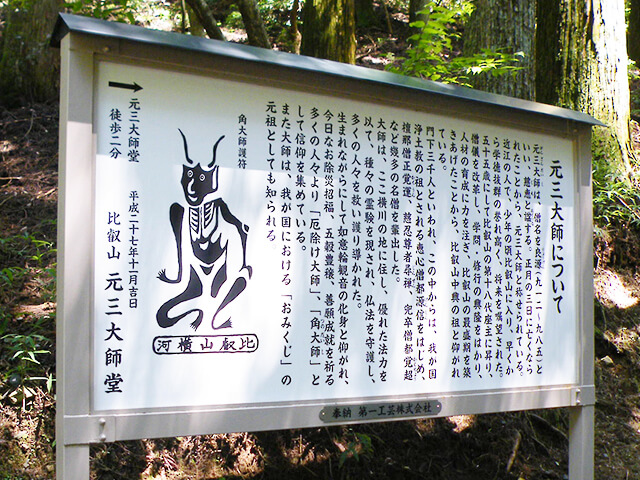 元三大師について
元三大師は、僧名を良源（九一二～九八五）と
いい、慈恵と諡する。正月の三日に亡くなら
れたことから、元三大師と称せられている。
近江の人で、少年の頃比叡山に入り、早くか
ら学徳抜群の誉れ高く、将来を嘱望された。
五十五歳にして比叡山の第十八代座主に昇り、
僧儀を改革し、学問・修行の興隆をはかり、
人材の育成に力を注ぎ、比叡山の最盛期を築
きあげたことから、比叡山中興の祖と仰がれ
ている。
門下三千人といわれ、この中からは、我が国
浄土教の祖とされる恵心僧都源信をはじめ、
檀那僧正覚運、慈忍尊者尋禅、兜率僧都覚超
など幾多の名僧を輩出した。
大師は、ここ横川の地に住し、優れた法力を
以て、種々の霊験を現され、仏法を守護し、
多くの人々を救い護り導かれた。
生まれながらにして如意輪観音の化身と仰がれ、
今日なお除災招福、五穀豊穣、善願成就を祈る
多くの人々より「厄除け大師」、「角大師」と
して信仰を集めている。
また大師は、我が国における「おみくじ」の
元祖としても知られる。
角大師護符
比叡山横川
平成二十七年十一月吉日
比叡山 元三大師堂
元三大師堂
徒歩二分
奉納 第一工芸株式会社